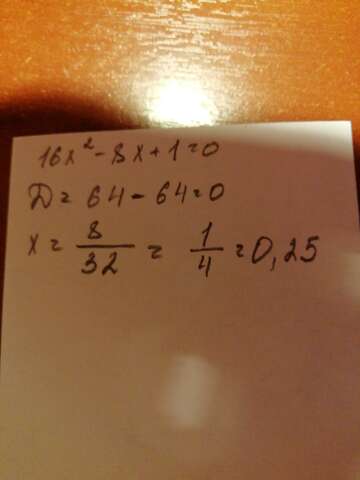 16x² - 8x + 1 = 0
D = 64 - 64 = 0
x = 8/32 = 1/4 = 0,25